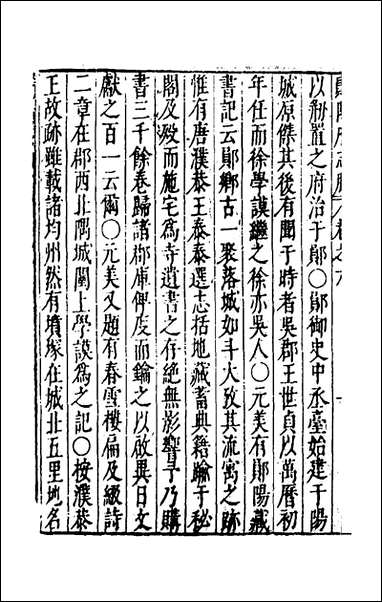 以剙置之府治于鄖〇鄖御史中丞臺始建于陽
城原傑其後有聞于時者吳郡王世貞以萬曆初
年任而徐學謨繼之徐亦吳人〇元美有鄖陽藏
書記云鄖鄉古一聚落城如斗大攷其流寓之跡
惟有唐濮恭王泰泰選志括地藏蓄典籍踰于秘
閣及歿而施宅為寺遺書之存絕無影響予乃購
書三千餘卷歸諸郡庫俾度而鑰之以啟異日文
獻之百一云爾〇元美又題有春雪樓扁及綴詩
二章在郡西北隅城闉上學謨為之記〇按濮恭
王故跡雖載諸均州然有墳塚在城北五里地名